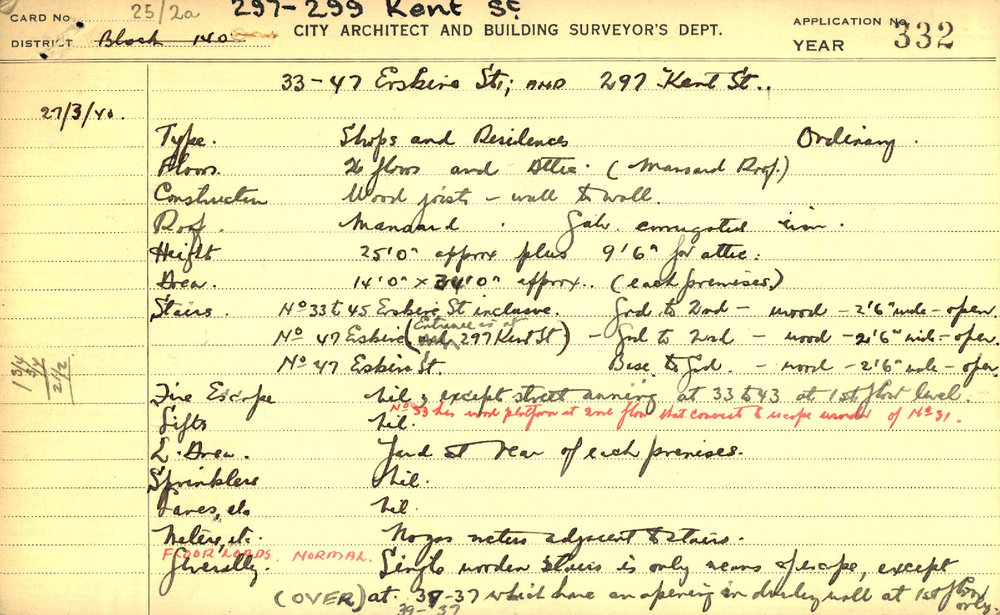 CARD No. 25/2a 297-299 Kent St
CITY ARCHITECT AND BUILDING SURVEYOR'S DEPT.
APPLICATION No. 332
DISTRICT Block 140
YEAR
33-47 Erskine St; AND 297 Kent St..
27/3/40.
Type. Shops and Residences Ordinary.
Floors. 2 floors and Attic. (Mansard Roof.)
Construction Wood joists - wall to wall.
Roof. Mansard. Galv. corrugated iron.
Height 25'0" approx plus 9'6" for attic.
Area. 14'0" x 34'0" approx.. (each premises.)
Stairs. No 33 to 45 Erskine St inclusive. Grd to 2nd - wood - 2'6" wide - open.
No 47 Erskine (Entrance is at 297 Kent St) - Grd to 2nd - wood - 2'6" wide - open.
No 47 Erskine St. Base. to Grd. - wood - 2'6" wide - open.
1 3/4
3/4
2 1/2
Fire Escape Nil, except street awning at 33 to 43 at 1st floor level.
No 33 has wood platform at 2nd floor that connects to escape of No 31.
Lifts Nil.
L. Area. Yard at rear of each premises.
Sprinklers Nil.
Eaves, etc Nil.
Meters, etc. No gas meters adjacent to stairs.
FLOOR LOADS. NORMAL.
Generally. Single wooden stairs is only means of escape, except
(OVER) at 37 which have an opening in wall at 1st floor only.
39-37